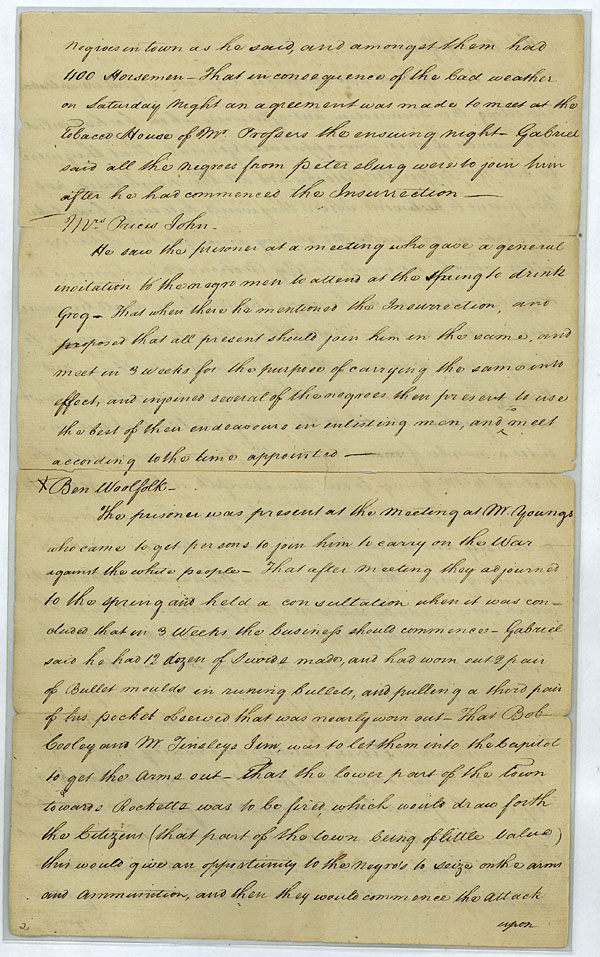 negroes in town as he said, and amongst them had
400 Horsemen – That in consequence of the bad weather
on Saturday night an agreement was made to meet at the
Tobacco House of Mr. Prossers the ensuing night – Gabriel
said all the negroes from Petersburg were to join him
after he had commenced the Insurrection —
Mrs Prices John –
He saw the prisoner at a meeting who gave a general
invitation to the negro men to attend at the Spring to drink
Grog – That when there he mentioned the Insurrection, and
proposed that all present should join him in the same, and
meet in 3 weeks for the purpose of carrying the same into
effect, and enjoined several of the negroes then present to use
the best of their endeavours in enlisting men, and to meet
according to the time appointed —
X Ben Woolfolk –
The prisoner was present at the meeting at Mr. Youngs
who came to get persons to join him to carry on the War
against the white people – That after meeting they adjourned
to the Spring and held a consultation when it was con-
cluded that in 3 Weeks the business should commence – Gabriel
said he had 12 dozen of Swords made, and had worn out 2 pair
of Bullet moulds in runing bullets, and pulling a third pair
of his pocket observed that was nearly worn out – That Bob
Cooley and Mr. Tinsleys Jim, was to let them into the Capitol
to get the arms out – That the lower part of the Town
towards Rocketts was to be fired, which would draw forth
the Citizens (that part of the town being of little value)
this would give an opportunity to the negro's to seize on the arms
and ammunition, and then they would commence the attack
upon
2